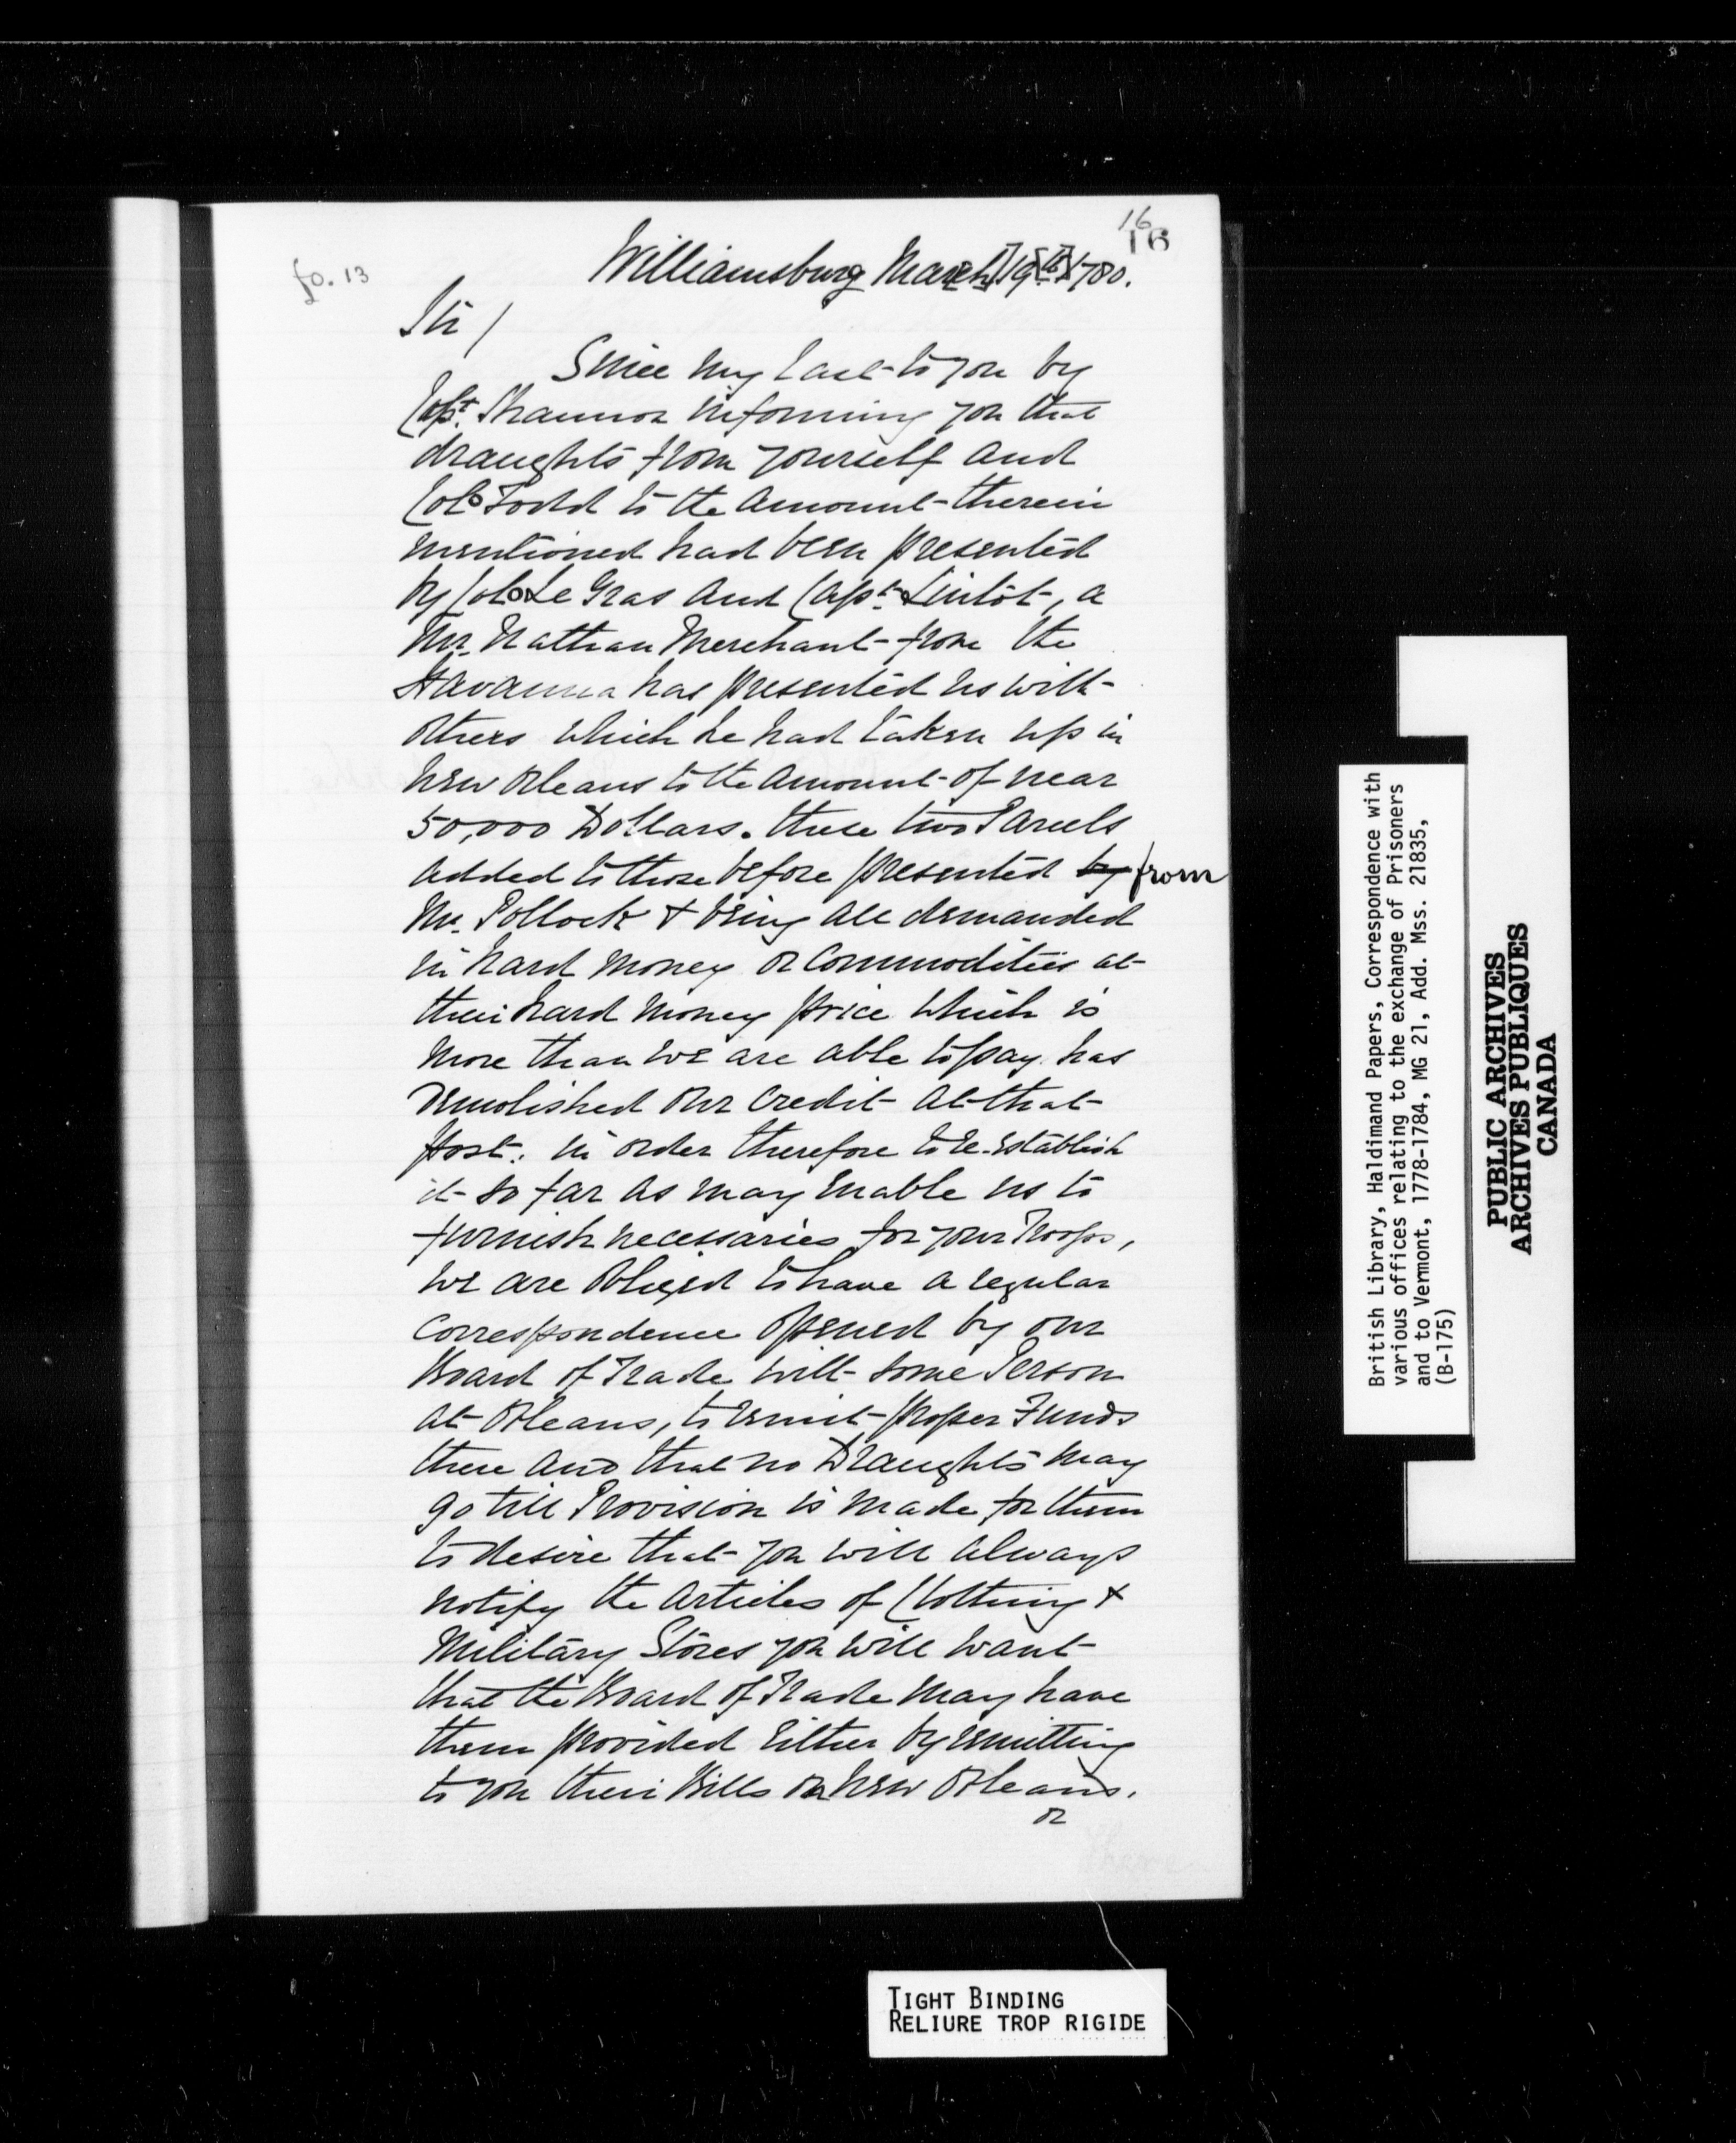 16
16
fo. 13
Williamsburg Mar[ch] 19[th] 1780.
Sir /
Since my last to you by
Capt. Shannon informing you that
draughts from yourself and
Colo Todd to the amount therein
mentioned had been presented
by Colo Le Gras and Capt. Lintot, a
Mr. Nathan Merchant from the
Havanna has presented us with
others which he had taken up in
New Orleans to the amount of near
50,000 Dollars. these two Parcels
added to those before presented by from
Mr. Pollock & being all demanded
in hard money or Commodities at
their hard money price which is
more than we are able to pay has
demolished our Credit at that
post. in order therefore to re-establish
it so far as may enable us to
furnish necessaries for your Troops,
we are obliged to have a regular
correspondence opened by our
Board of Trade with some Person
at Orleans, to remit proper Funds
there and that no Draughts may
go till Provision is made for them
to desire that you will always
notify the Articles of Clothing &
Military Stores you will want
that the Board of Trade may have
them provided either by remitting
to you their Bills on New Orleans.
or
British Library, Haldimand Papers, Correspondence with
various offices relating to the exchange of Prisoners
and to Vermont, 1778-1784, MG 21, Add. Mss. 21835,
(B-175)
PUBLIC ARCHIVES
ARCHIVES PUBLIQUES
CANADA
TIGHT BINDING
RELIURE TROP RIGIDE